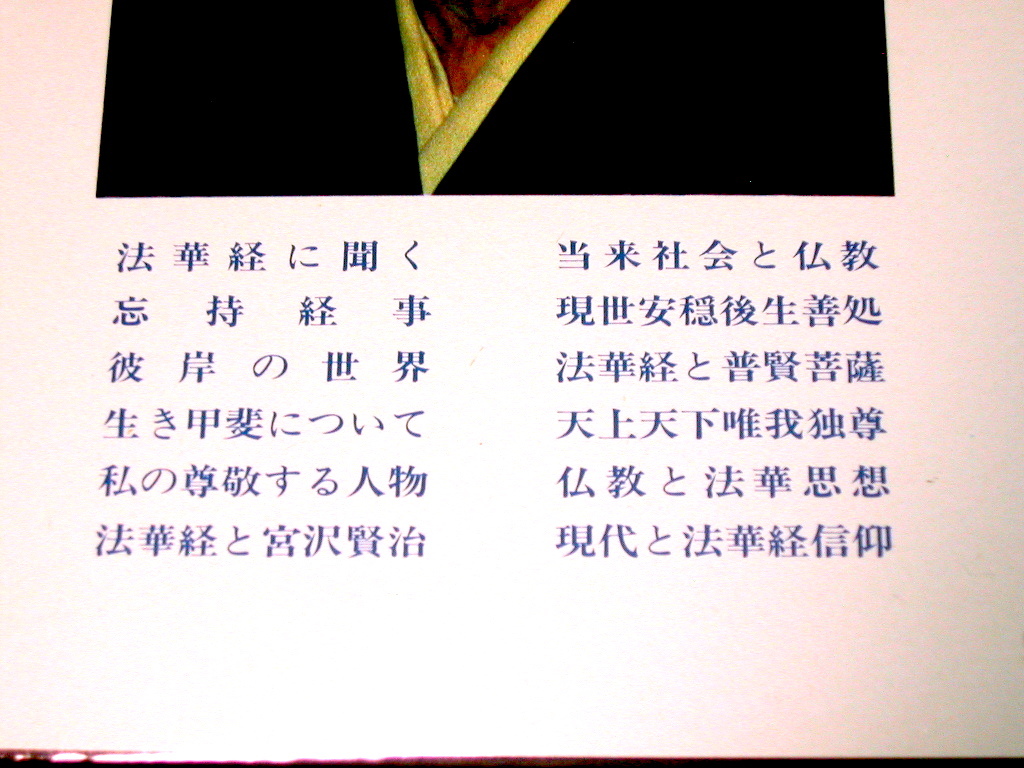 法華経に聞く
忘持経事
彼岸の世界
生き甲斐について
私の尊敬する人物
法華経と宮沢賢治
当来社会と仏教
現世安穏後生善処
法華経と普賢菩薩
天上天下唯我独尊
仏教と法華思想
現代と法華経信仰